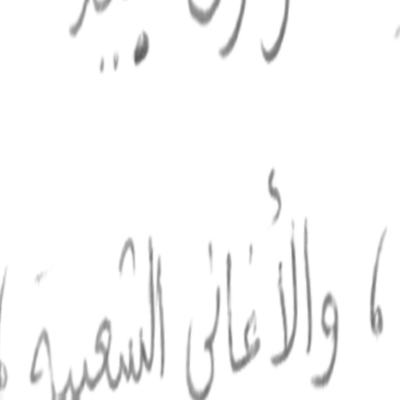 ، والأغانى الشعبية ،